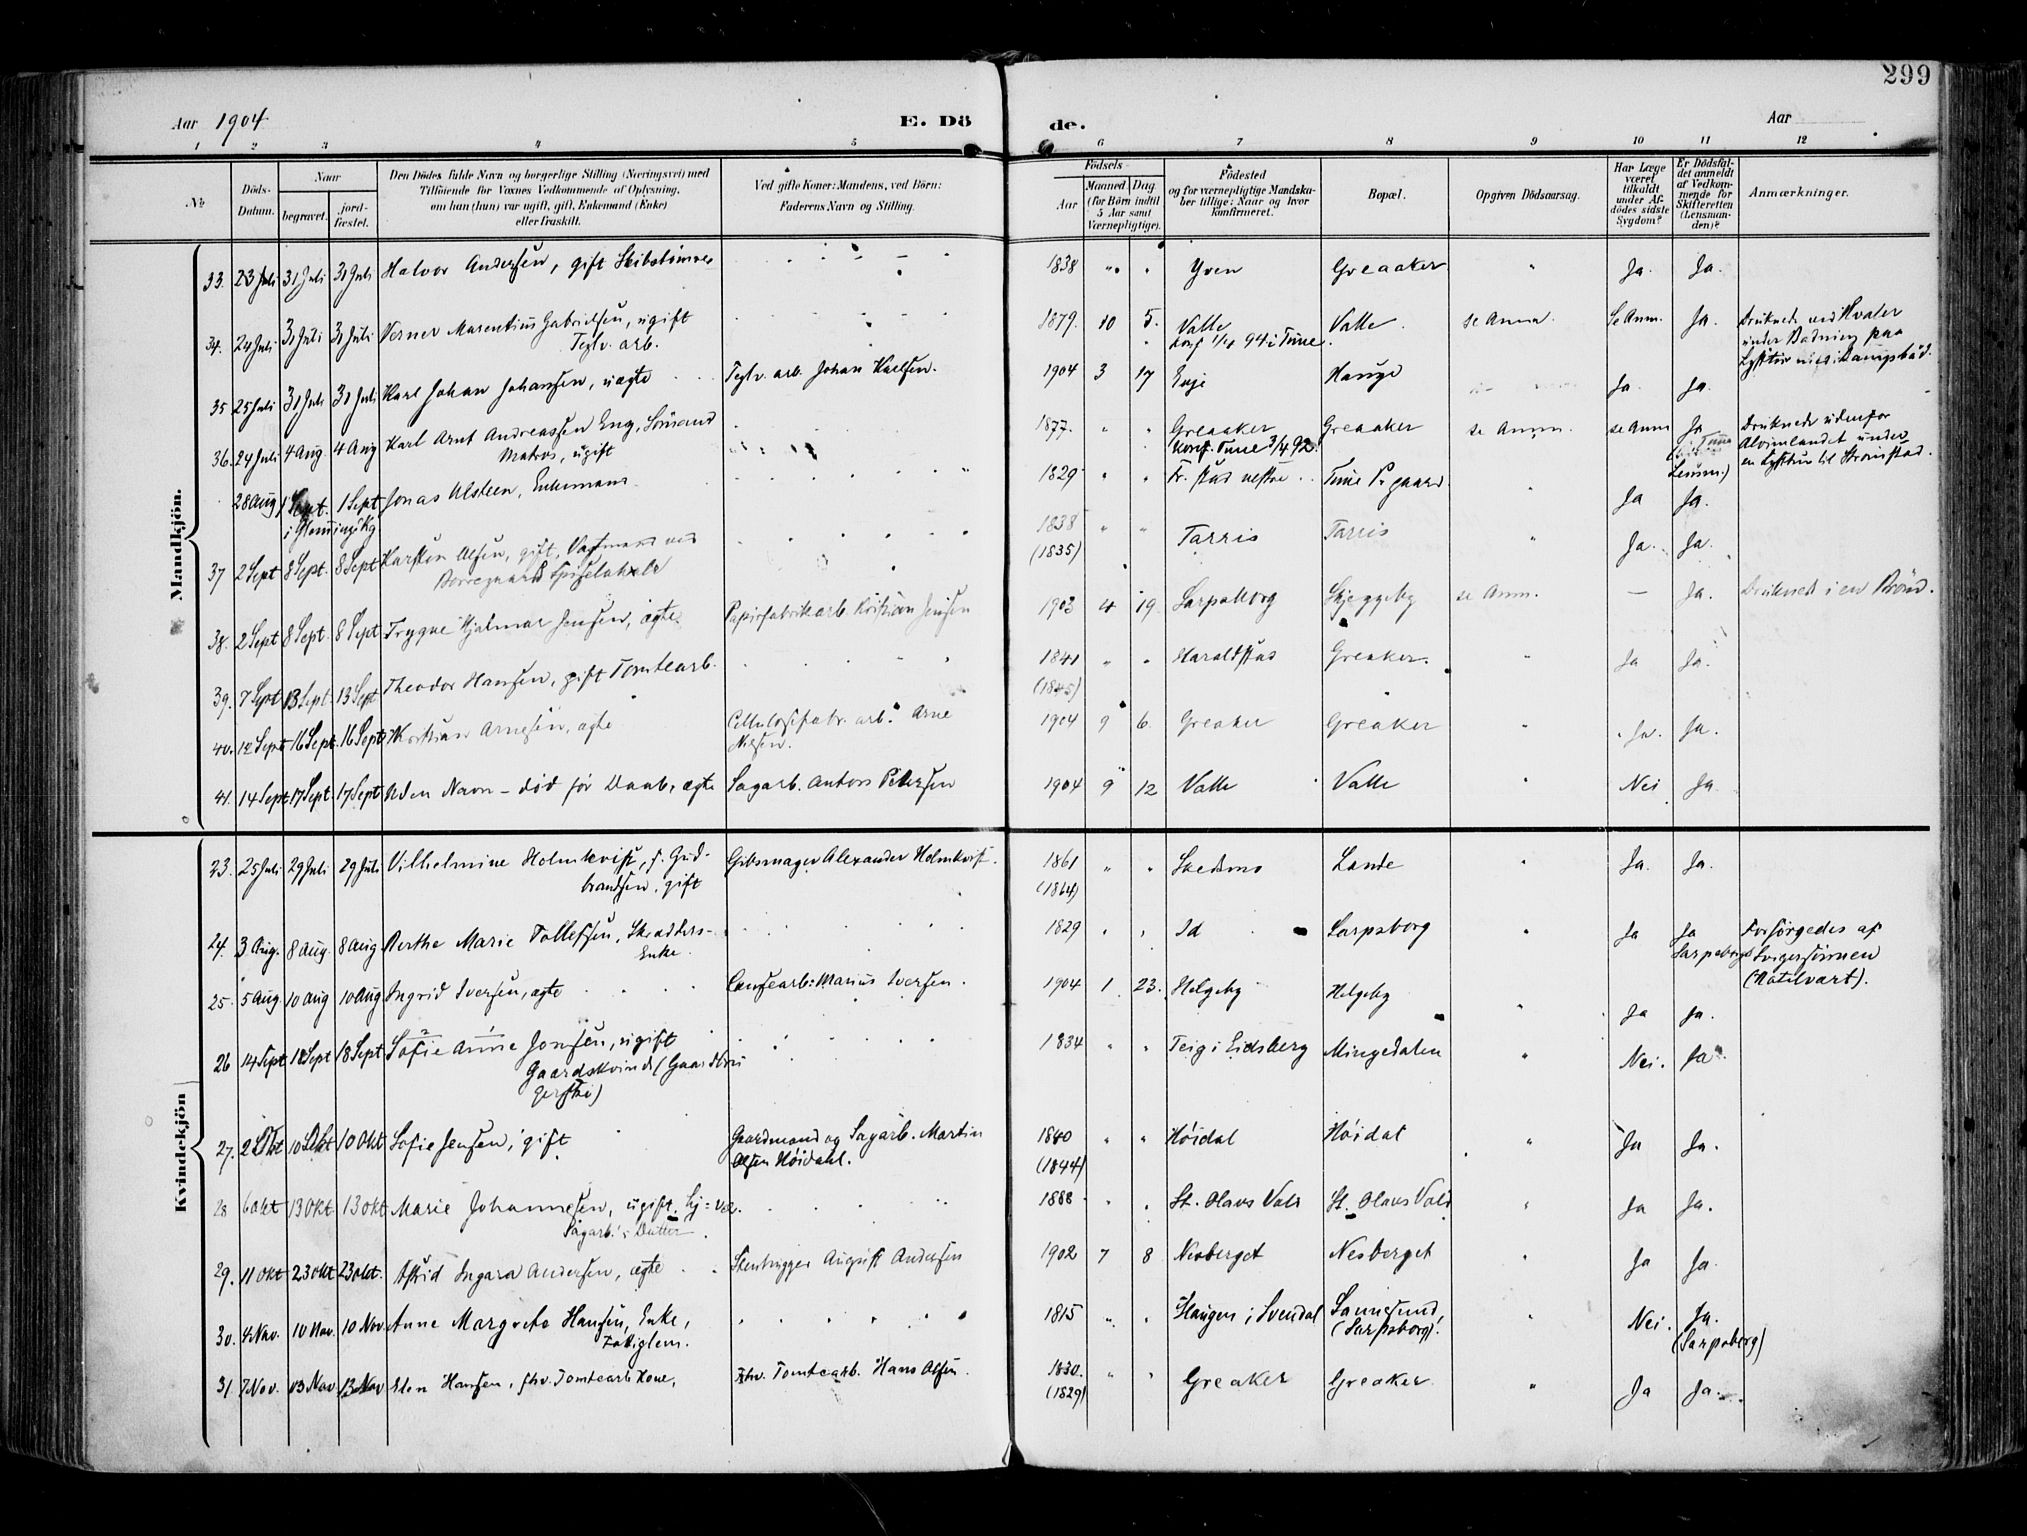 299
Aar 1904 E. Dö de. Aar
1 2 3 4 5 6 7 8 9 10 11 12
No
Döds-Datum.
Naar
begravet.
jord-fæstet.
Den Dödes fulde Navn og borgerlige Stilling (Næringsvei) med
Tilföiende for Voxnes Vedkommende af Oplysning,
om han (hun) var ugift, gift, Enkemand (Enke)
eller fraskilt.
Ved gifte Koner: Mandens, ved Börn:
Faderens Navn og Stilling.
Födsels-
Aar
Maaned Dag
(for Börn indtil
5 Aar samt
Værnepligtige).
Födested
og for værnepligtige Mandska-
ber tillige: Naar og hvor
konfirmeret.
Bopæl.
Opgiven Dödsaarsag.
Har Læge
været
tilkaldt
under Af-
dödes sidste
Sygdom?
Er Dödsfal-
det anmeldt
af Vedkom-
mende for
Skifteretten
(Lensman-
den)?
Anmærkninger.
Mandkjön.
33. 23 Juli 31 Juli 31 Juli Halvor Andersen, gift 1838 " " Yven Greaaker " Ja. Ja.
34. 24 Juli 31 Juli 31 Juli Verner Marentius Gabrielsen, ugift 1879. 10 5. Valle Valle. se Anm. Se Anm. Ja. Druknede ved Hvaler
Teglv. arb. konf 1/10 94 i Tune. under Badning paa
Lysttur
35 25 Juli 31 Juli 31 Juli Karl Johan Johansen, uægte Teglv. arb. Johan Karlsen. 1904 3 17 Enje Hauge Ja. Ja.
36. 24 Juli 4 Aug. 4 Aug Karl Arnt Andreassen Eng, Sömand 1877. " " Greaaker Greaaker se Anm. se Anm Ja Druknede udenfor
Matros, ugift Konf. Tune 3/4 92. (i Tune Alvimlandet under
Lensm.) en Lysttur til Strömstad.
28 Aug 1 Sept. 1 Sept Jonas Alsteen, Enkemand 1829 " " Fr. stad Tune Pr.gaard " Ja Ja.
i Glemminge Kg
37 2 Sept 8 Sept. 8 Sept Karsten Olsen, gift, Vagtmand ved 1838 " " Tarris Tarris " Ja. Ja.
Borregaard (1835)
38. 2 Sept 8 Sept. 8 Sept Trygve Hjalmar Jensen, ægte Papirfabrikarb. Kristian Jensen 1903 4 19. Sarpsborg Skjeggeby se Anm. — Ja. Druknet i en Brönd.
39. 7 Sept 13 Sept. 13 Sept Theodor Hansen, gift Tomtearb. 1841 " " Haraldstad Greaker. " Ja Ja.
(1845)
40. 12 Sept 16 Sept. 16 Sept Kristian Arnesen, ægte Cellulosefabr. arb. Arne 1904 9 6. Greaker Greaker " Ja. Ja.
Nilsen.
41. 14 Sept 17 Sept. 17 Sept Uden Navn – död för Daab, ægte Sagarb. Anton Petersen 1904 9 12 Valle Valle " Nei Ja
Kvindekjön
23. 25 Juli 29 Juli 29 Juli Vilhelmine Holmkvist, f. Gud- Gibsmager Alexander Holmkvist. 1861 " " Skedsmo Lande " Ja. Ja.
brandsen, gift (1864)
24. 3 Aug. 8 Aug 8 Aug Berthe Marie Tollefsen, Skrædders- 1829 " " Id Sarpsborg " Ja Ja Forsörgedes af
Enke. Sarpsborg Svigersönnen
25. 5 Aug 10 Aug 10 Aug Ingrid Iversen, ægte Marius Iversen. 1904 1 23. Helgeby Helgeby " Ja Ja.
26 14 Sept 18 Sept 18 Sept Sofie Anne Jonsen, ugift 1834 " " Teig i Eidsberg Mingedalen " Nei. Ja
Gaardskvinde
27. 2 Okt 10 Okt 10 Okt Sofie Jensen, gift Gaardmand og Sagarb. Martin 1840 " " Höidal Höidal " Ja Ja.
Olsen Höidahl. (1844)
28 6 Okt 13 Okt 13 Okt Marie Johannesen, ugift. 1888 " " St. Olavs Vold St. Olavs Vold " Ja Ja.
Sagarb.'s Datter.
29. 11 Okt 23 Okt 23 Okt. Astrid Ingara Andersen, ægte Stenhugger August Andersen 1902 7 8 Nesberget Nesberget " Ja Ja.
30. 4 Nov. 10 Nov. 10 Nov. Anne Margrete Hansen, Enke, 1815 " " Haugen i Svendal Sannesund, " Nei. Ja.
Fattiglem. (Sarpsborg). (Sarpsborg)
31. 7 Nov. 13 Nov 13 Nov Elen Hansen, fhv. Tomtearb. Kone, Fhv. Tomtearb. Hans Olsen. 1830. " " Greaker Greaker " Ja Ja.
(1829)